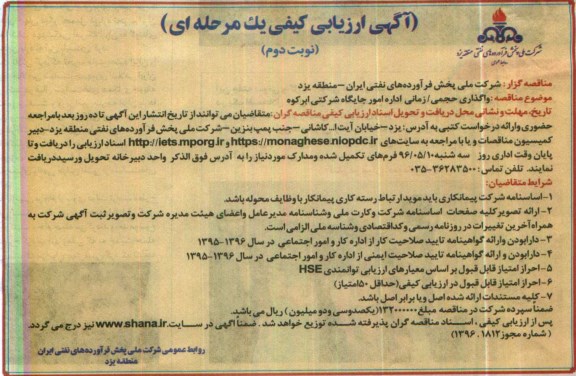 (آگهی ارزیابی کیفی یك مرحله ای)
(نوبت دوم)
شرکت ملی پخش فرآورده‌های نفتی منطقه یزد
مناقصه گزار: شرکت ملی پخش فرآورده‌های نفتی ایران -منطقه یزد
موضوع مناقصه: واگذاری حجمی/ زمانی اداره امور جایگاه شرکتی ابرکوه
تاریخ، مهلت و نشانی محل دریافت و تحویل اسناد ارزیابی کیفی مناقصه گران: متقاضیان می توانند از تاریخ انتشار این آگهی تا ده روز بعد بامراجعه
حضوری وارائه درخواست کتبی به آدرس: یزد -خیابان آیت ا.. کاشانی -جنب پمپ بنزین -شرکت ملی پخش فرآورده‌های نفتی منطقه یزد-دبیر
کمیسیون مناقصات و یا با مراجعه به سایت‌های https://monaghese.niopdc.ir و http://iets.mporg.ir اسناد ارزیابی را دریافت و تا
پایان وقت اداری روز سه شنبه ۹۶/۰۵/۱۰ فرم‌های تکمیل شده ومدارک موردنیاز را به آدرس فوق الذکر واحد دبیرخانه تحویل ورسیددریافت
نمایند. تلفن تماس: ۳۶۲۸۳۵۰۰-۰۳۵
شرایط متقاضیان:
۱-اساسنامه شرکت پیمانکاری باید موید ارتباط رسته کاری پیمانکار با وظایف محوله باشد.
۲- ارائه تصویر کلیه صفحات اساسنامه شرکت وکارت ملی وشناسنامه مدیرعامل واعضای هیئت مدیره شرکت وتصویر ثبت آگهی شرکت به
همراه آخرین تغییرات در روزنامه رسمی و کد اقتصادی وشناسه ملی الزامی است.
۳-دارابودن وارائه گواهینامه تایید صلاحیت کار از اداره کار و امور اجتماعی در سال ۱۳۹۶-۱۳۹۵
۴-دارابودن و ارائه گواهینامه تایید صلاحیت ایمنی از اداره کار و امور اجتماعی در سال ۱۳۹۶-۱۳۹۵
۵-احراز امتیاز قابل قبول بر اساس معیارهای ارزیابی توانمندی HSE
۶-احراز امتیاز قابل قبول در ارزیابی کیفی(حداقل ۵۰امتیاز)
۷-کلیه مستندات ارائه شده اصل ویا برابر اصل باشد.
ضمناً سپرده شرکت در مناقصه مبلغ ۱۳۲۰۰۰۰۰۰(یکصدوسی ودو میلیون) ریال می باشد.
پس از ارزیابی کیفی، اسناد مناقصه گران پذیرفته شـده توزیع خواهد شد. ضمناً آگهی در سایـت www.shana.ir نیز درج می گردد.
(شماره مجوز ۱۸۱۲. ۱۳۹۶)
روابط عمومی شرکت ملی پخش فرآورده‌های نفتی ایران
منطقه یزد